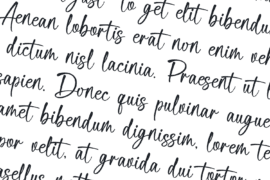 to get elit bibendu
Aenean lobortis erat non enim veh
dictum nisl lacinia. Praesent ut l
sapien. Donec quis pulvinar augue
amet bibendum dignissim, lorem te
por velit, at gravida dui tortor